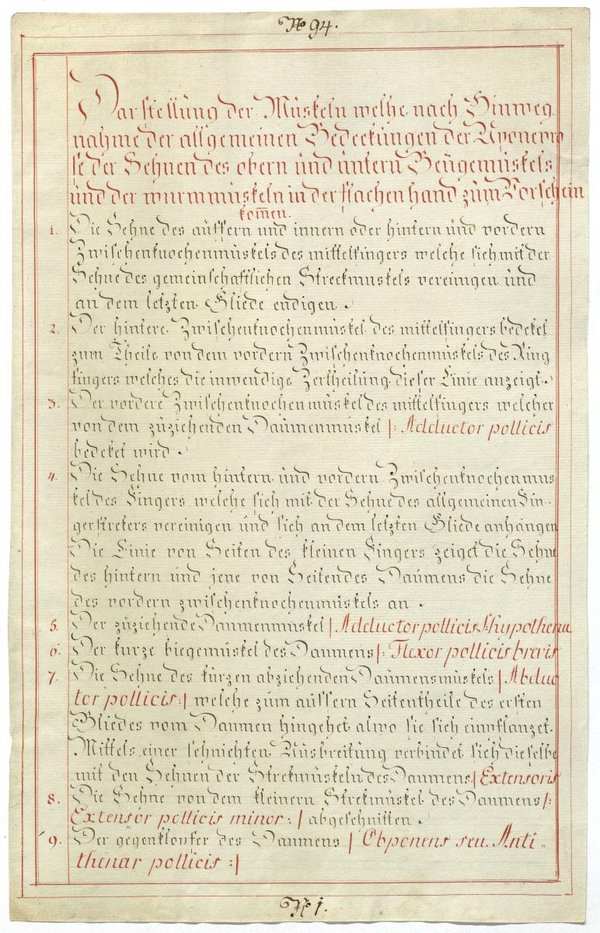 No 94.
Darstellung der Müskeln welhe nach Hinweg
nahme der allgemeinen Bedeckungen der Aponevro
se der Sehnen des obern und untern Beügemüskels
und der wurmmüskeln in der flachen hand züm Vorschein
kom̅en.
1. Die Sehne des aüssern und innern oder hintern und vordern
Zwischenknochenmüskels des mittelfingers welche sich mit der
Sehne des gemeinschaftlichen Streckmuskels vereinigen und
an dem letzten Gliede endigen.
2. Der hintere Zwischenknochenmüskel des mittelfingers bedeket
zum Theile von dem vordern Zwischenknochenmüskels des Ring
fingers welches die inwendige Zertheilung dieser Linie anzeigt.
3. Der vordere Zwischenknochenmüskel des mittelfingers welcher
von dem züziehenden Daümenmüskel /: Adductor pollicis
bedeket wird.
4. Die Sehne vom hintern und vordern Zwischenknochenmüs
kel des Fingers welche sich mit der Sehne des allgemeinen Fin-
gerstrekers vereinigen und sich an dem letzten Gliede anhängen
Die Linie von Seiten des kleinen Fingers zeiget die Sehne
des hintern und jene von Seiten des Daümens die Sehne
des vordern zwischenknochenmüskels an.
5. Der züziehende Daumenmüskel /: Adductor pollicis S. hypothena
6. Der kurze biegemüskel des Daumens /: Flexor pollicis brevis
7. Die Sehne des kürzen abziehenden Daumensmüskels /: Abduc
tor pollicis :/ welche zum aüssern Seitentheile des ersten
Gliedes vom Daumen hingehet alwo sie sich einpflanzet.
Mittels einer sehnichten Ausbreitung verbindet sich dieselbe
mit den Sehnen der Strekmüskeln des Daumens /: Extensoris
8. Die Sehne von dem kleinern Strekmüskel des Daumens /:
Extensor pollicis minor :/ abgeschnitten.
9. Der gegenstosser des Daumens /: Obponens seu Anti-
thenar pollicis :/
No 1.